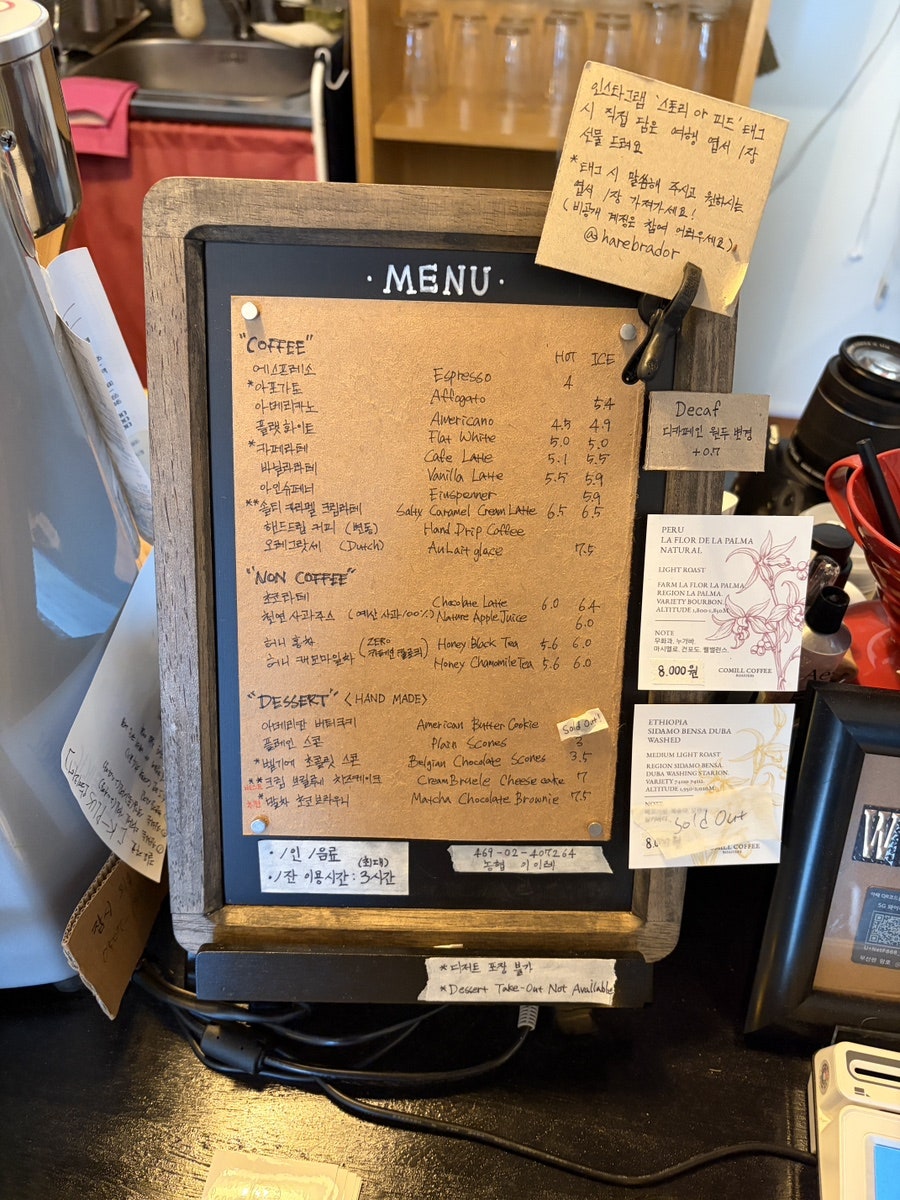 인스타그램 '스토리 or 피드' 태그
시 직접 담은 여행 엽서 1장
선물 드려요
*태그 시 말씀해 주시고 원하시는
엽서 1장 가져가세요!
(비공개 계정은 참여 어려우세요)
@harebrador
·MENU·
"COFFEE" HOT ICE
에스프레소 Espresso 4
*아포가토 Affogato 5.4
아메리카노 Americano 4.5 4.9
플랫화이트 Flat White 5.0 5.0
*카페라떼 Cafe Latte 5.1 5.5
바닐라라떼 Vanilla Latte 5.5 5.9
아인슈페너 Einspenner 5.9
**솔티 캬라멜 크림라떼 Salty Caramel Cream Latte 6.5 6.5
핸드드립 커피 (변동) Hand Drip Coffee
오레그랏세 (Dutch) Au Lait glace 7.5
"NON COFFEE"
초코라떼 Chocolate Latte 6.0 6.4
천연 사과주스 (예산 사과100%) Nature Apple Juice 6.0
허니 홍차 Honey Black Tea 5.6 6.0
허니 캐모마일차 Honey Chamomile Tea 5.6 6.0
(ZERO
"DESSERT" <HAND MADE>
아메리칸 버터쿠키 American Butter Cookie Sold Out!
플레인 스콘 Plain Scones 3
*벨기에 초콜릿 스콘 Belgian Chocolate Scones 3.5
**크림 브륄레 치즈케이크 Cream Brulele Cheese cake 7
*말차 초코브라우니 Matcha Chocolate Brownie 7.5
·1인 1음료
·1잔 이용시간 : 3시간 (최대)
469-02-407264
농협
*디저트 포장 불가
*Dessert Take-Out Not Available
Decaf
디카페인 원두 변경
+0.7
PERU
LA FLOR DE LA PALMA
NATURAL
LIGHT ROAST
FARM LA FLOR LA PALMA
REGION LA PALMA
VARIETY BOURBON
ALTITUDE 1,800-1,850M
NOTE
무화과, 누가바,
마시멜로, 건포도, 웰밸런스.
8,000원
COMILL COFFEE
ROASTERS
ETHIOPIA
SIDAMO BENSA DUBA
WASHED
MEDIUM LIGHT ROAST
REGION SIDAMO BENSA
DUBA WASHING STARION
VARIETY 74110 74112
ALTITUDE 1,950-2,020M
NOTE
Sold Out
COMILL COFFEE
ROASTERS